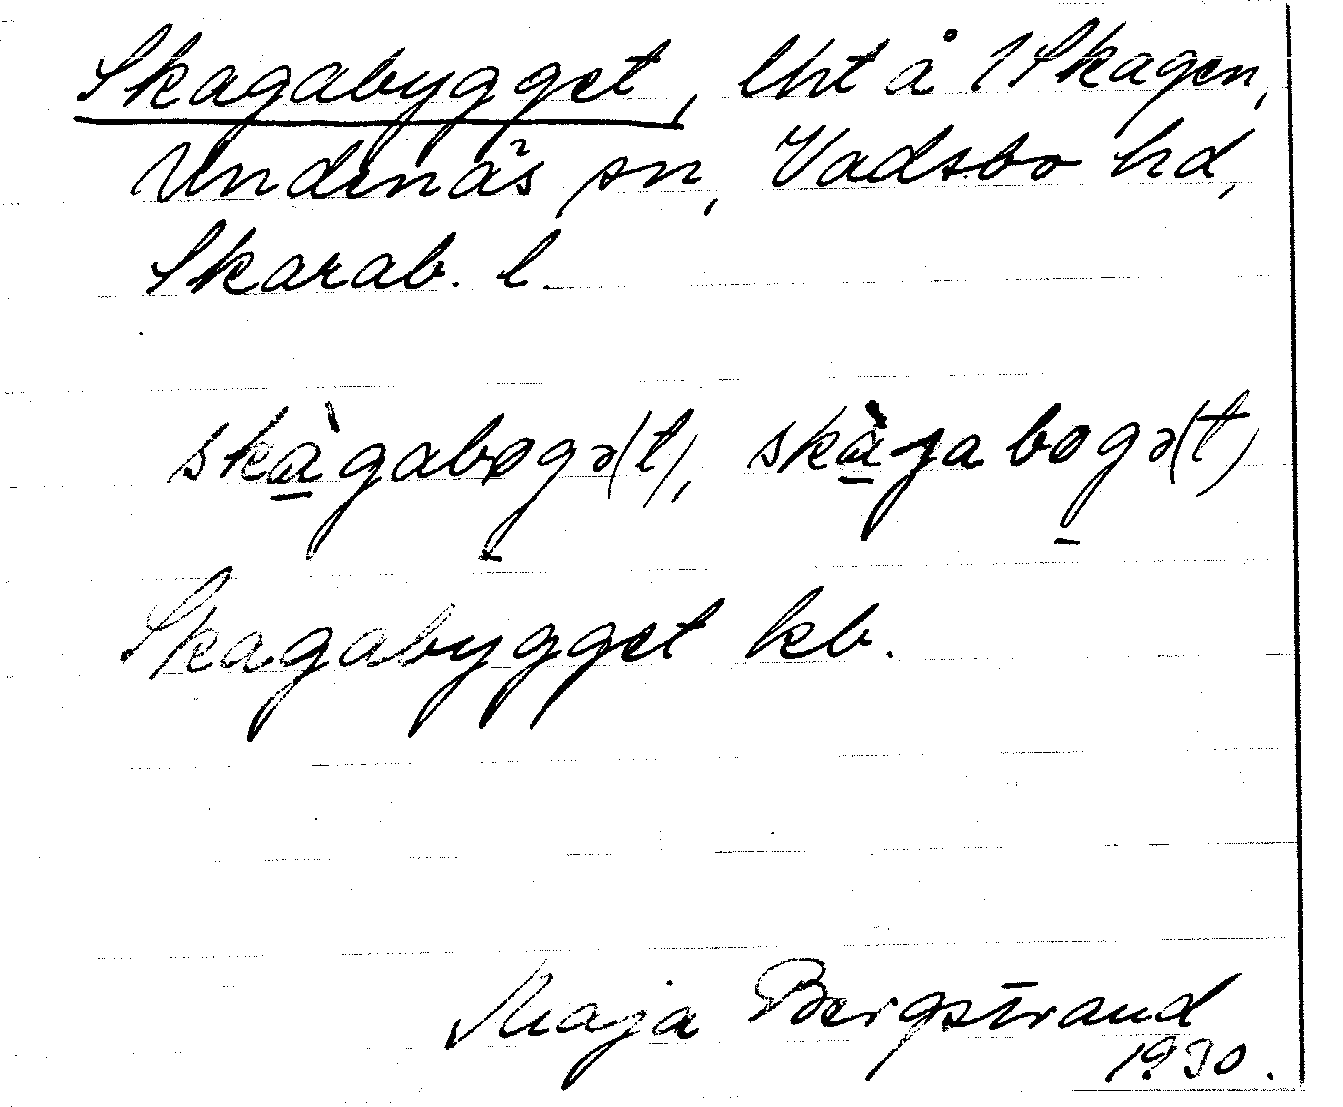 Skagabygget, lht å 1 Skagen,
Undenäs sn, Vadsbo hd,
Skarab. l.
skàgabogə(t), skàgabogə(t)
Skagabygget kb.
Maja Bergstrand
1930.